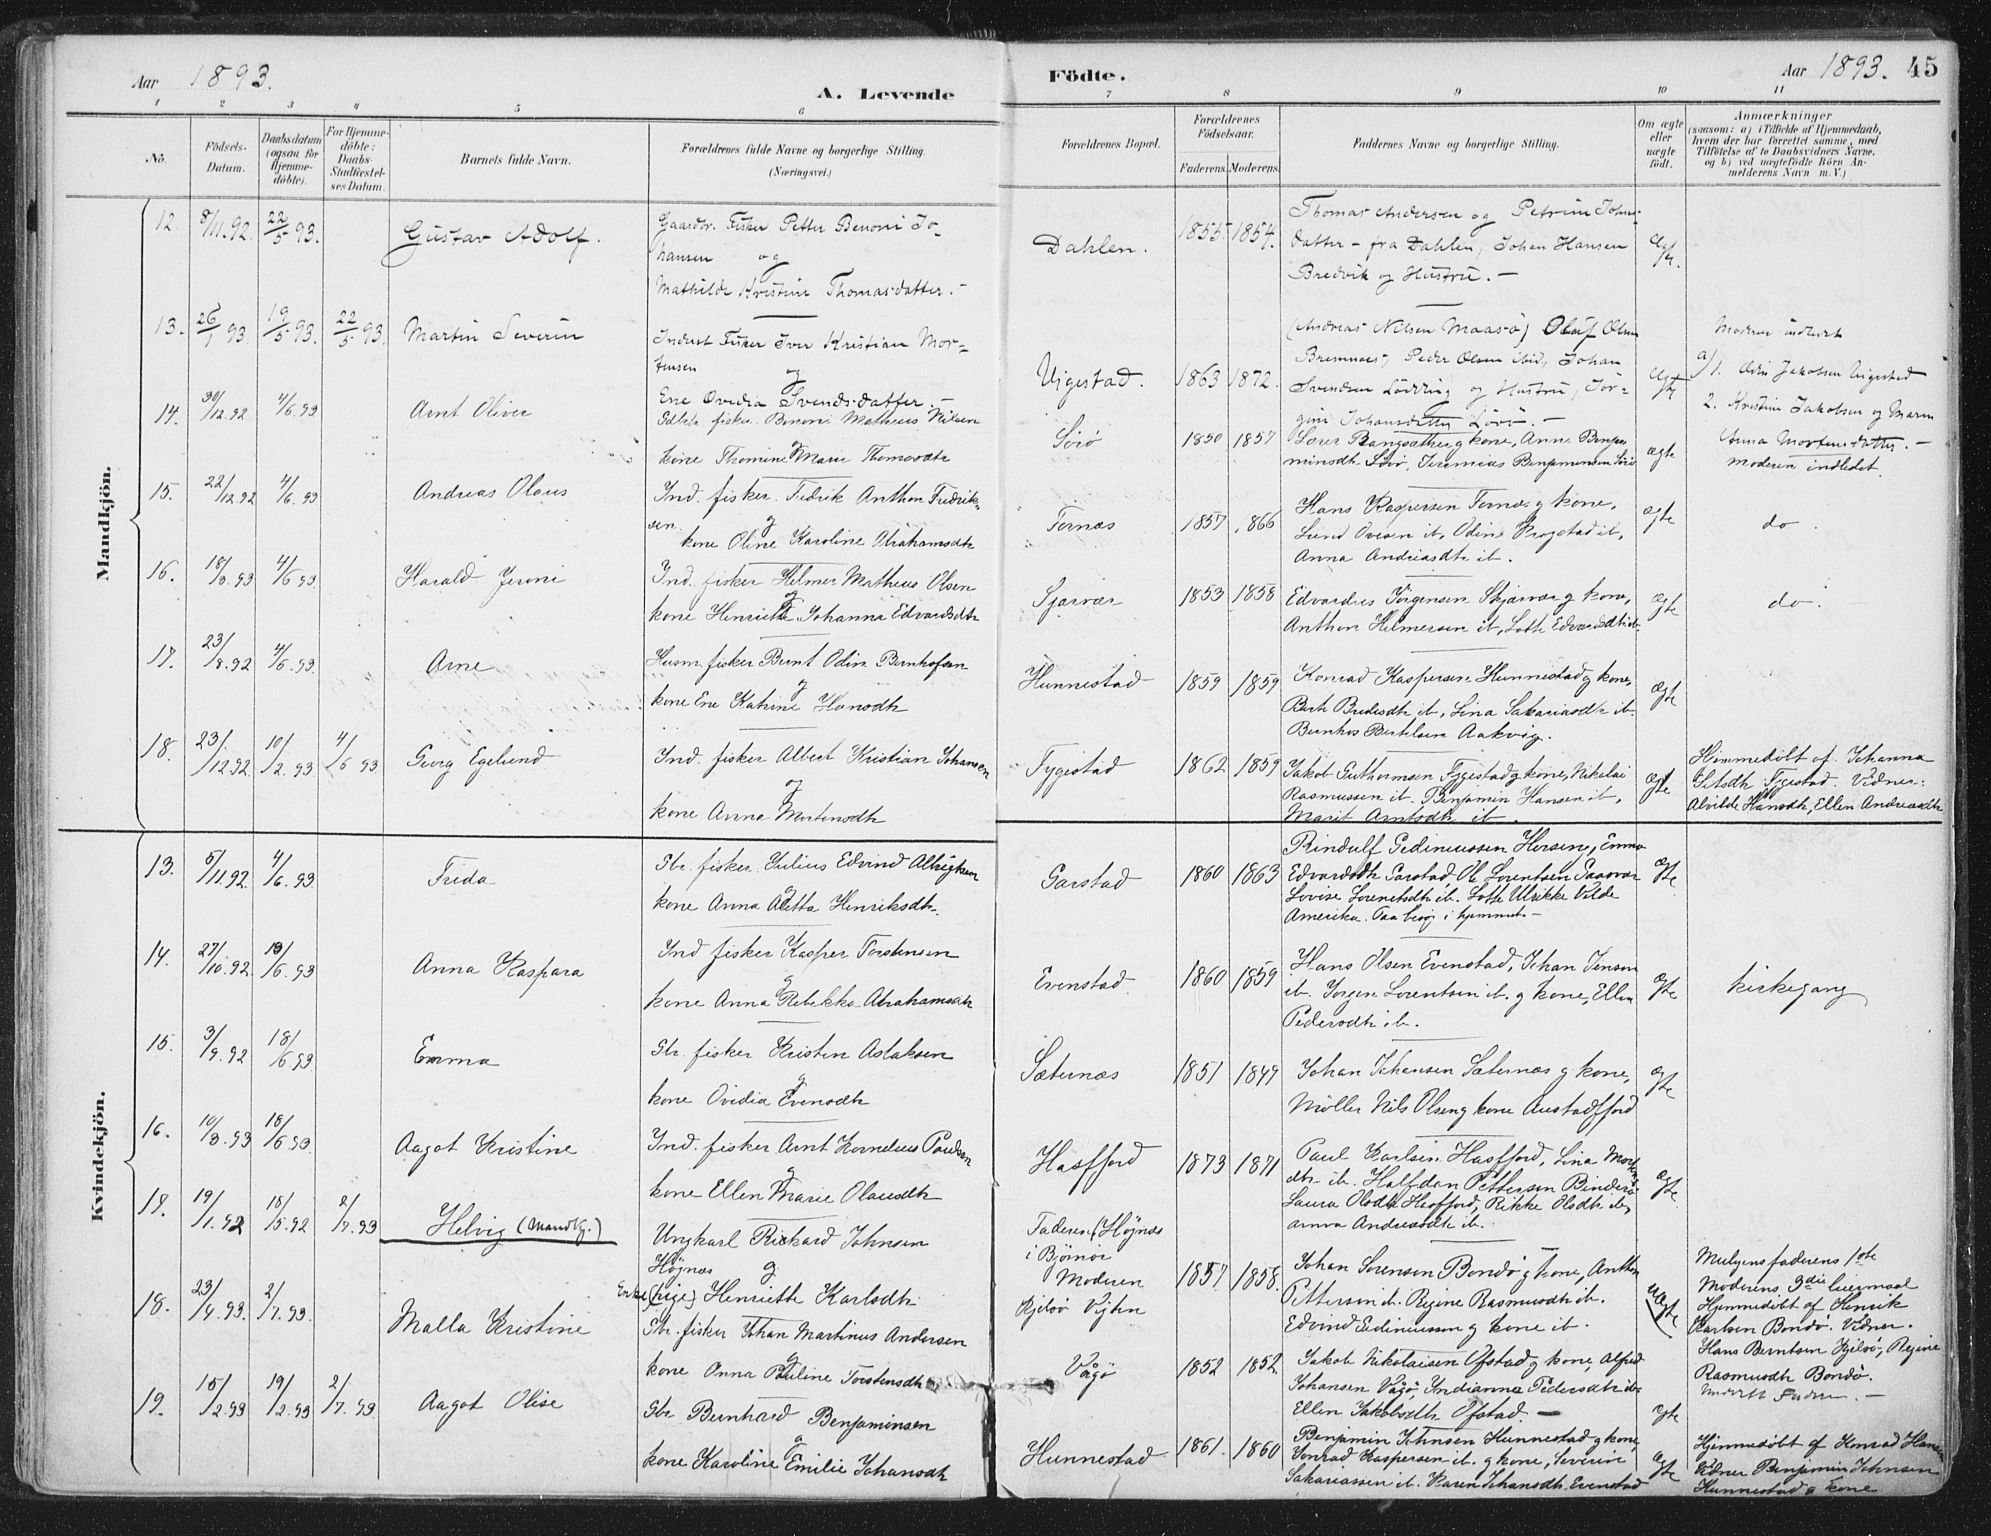 Aar 1893.
A. Levende
Födte.
Aar 1893. 45
1 2 3 4 5 6 7 8 9 10 11
No.
Födsels-Datum.
Daabsdatum (ogsaa for Hjemmedöbte).
For Hjemmedöbte: Daabs-Stadfæstelses Datum.
Barnets fulde Navn.
Forældrenes fulde Navne og borgerlige Stilling.
(Næringsvei.)
Forældrenes Bopæl.
Forældrenes Födselsaar.
Faderens. Moderens.
Faddernes Navne og borgerlige Stilling.
Om ægte eller uægte födt.
Anmærkninger
(saasom: a) i Tilfælde af Hjemmedaab, hvem der har forrettet samme, med Tilföielse af to Daabsvidners Navne, og b) ved uægtefödte Börn Anmelderens Navn m. V.)
Mandkjön.
12 8/11.92. 22/5 93. Gustav Adolf.
Gaardbr. Fisker Petter Benoni Jo-
hansen og
Mathilde Kristine Thomasdatter.-
Dahlen. 1855. 1854.
Thomas Andersen og Petrine Johns-
datter - fra Dahlen, Johan Hansen
Bredvik og Hustru. -
Ægte.
13. 26/1 93 19/5 93. 22/5 93. Martin Severin
Inderst Fisker Iver Kristian Mor-
tensen
og
Ene Ovidia Svendsdatter.-
Ujgestad. 1863 1872.
(Andreas Nilsen Maasö) Oluf Olsen
Bremnes, Peder Olsen ibid, Johan
Svendsen og Hustru, Jör-
gine Johansdatter -
Ægte
Moderen indledt
a) 1. Jakobsen Uigestad
2. Kristine Jakobsen og Maren
Anna Mortensdatter.-
14. 30/12.92 4/6.93 Arnt Oliver
fisker Benoni Matheus Nilsen
og
kone Thomine Marie Thomasdtr
Sörö 1850 1857
kone, Anne Benja
minsdtr Sörö, Jeremias Benjaminsen Sörö
ægte
Moderen indledet.
15. 22/12.92 4/6.93 Andreas Olaus
Ind. fisker. Fedrik Anthon Fredrik-
sen. og
kone Oline Karoline Abrahamsdtr
Ternæs 1857 1866
Hans Kaspersen Ternæs g kone,
Ovesen ib, Odine ib,
Anna Andreasdtr ib.
ægte
do.
16. 18/3.93 4/6.93 Harald Jeroni
Ind. fisker Helmer Matheus Olsen
og
kone Henriette Johanna Edvardsdtr
Sjærvær 1853 1858
Edvardus Jörgensen Skjærvær g kone,
Anthon Helmersen ib, Lotte Edvardsdtr ib
Ægte
do.
17. 23/8.92 4/6.93 Arne
Husm. fisker Bernt Odin Bernhofsen
og
kone Ene Katrine Hansdtr
Hunnestad 1859 1859
Konrad Kaspersen Hunnestad g kone,
Berh Bredesdtr ib, Lina Sakariasdtr ib.
Bernhof Bertelsen Aakvig.
Ægte
18. 23/12.92 10/2.93 4/6 93 Georg Egelund
Ind. fisker Albert Kristian Johansen
og
kone Anna Mortensdtr
Tygestad 1862 1859
Jakob Guthormsen Tygestad g kone, Nikolai
Rasmussen ib. Benjamin Hansen ib,
Marit Arntsdtr ib.
Ægte
Hjemmedöbt af Johanna
Tygestad. Vidner:
Alvilde Hansdtr, Ellen Andreasdtr
Kvindekjön.
13. 5/11.92 4/6.93 Frida
Gbr. fisker Julius Edvind Albrigtsen
og
kone Anna Aletta Henriksdtr.
Garstad 1860 1863
Rindulf Pedinussen Horsene, Emma
Edvardsdtr Garstad Ole Lorentsen Paasvær
Lovise Lorentsdtr ib. Lotte Ulrikke Vilde
Amerika. Paa besög i hjemmet.-
Ægte
14. 27/10.92 18/6.93 Anna Kaspara
Ind fisker Kasper Torstensen
og
kone Anna Rebekka Abrahamsdtr
Evenstad. 1860 1859
Hans Olsen Evenstad, Johan Jensen
ib. Jörgen Lorentsen ib. g kone, Ellen
Pedersdtr ib.
Ægte
kirkegang
15. 3/9.92 18/6.93 Emma
Gbr. fisker Kristen Aslaksen
og
kone Ovidia Evensdtr
Sæternæs 1851 1849
Johan Johansen Sæternæs g kone,
Möller Nils Olsen g kone Austadfjord
Ægte
16. 10/3.93 18/6.93 Aagot Kristine
Ind. fisker Arnt Kornelius Paulsen
og
kone Ellen Marie Olausdtr
Hasfjord 1873 1871
Paul Karlsen Hasfjord, Lina Mortens
dtr ib. Halfdan Pettersen Binderö
Laura Olsdtr Hasfjord, Rikke Olsdtr ib,
Anna Andreasdtr ib.
Ægte.
17. 19/1.92 18/5.92 2/7.93 Helvig (Mandkj.)
Ungkarl Rickard Johnsen
Höynæs g.
Enke (pige) Henriette Karlsdtr
Faderen (Höynæs
i Björnör
Moderen
Kjelsö Vigten
1857 1858.
Johan Sörensen Bondö g kone, Anthon
Pettersen ib. Regine Rasmusdtr ib.
Edvind Pedinussen g kone ib.
uægte
Muligens faderens 1ste
Moderens 3die leiermaal
Hjemmedöbt af Henrik
Karlsen Bondö. Vidner.
Hans Berntsen Kjelsö, Regine
Rasmusdtr Bondö.
18. 23/4.93. 2/7.93. Malla Kristine
Gbr. fisker Johan Martinus Andersen
og
kone Anna Pauline Torstensdtr
Vågö 1852 1852
Jakob Nikolaisen Ofstad g kone, Alfred
Johansen Vågö, Indianna Pedersdtr ib
Ellen Jakobsdtr Ofstad. -
ægte
19. 15/2.93 19/2.93 2/7.93 Aagot Olise
Gbr Bernhard Benjaminsen
og
kone Karoline Emilie Johansdtr
Hunnestad 1861. 1860
Benjamin Johnsen Hunnestad g kone,
Konrad Kaspersen ib. g kone, Severin
Sakariassen ib. Karen Johansdtr. Evenstad
Ægte
Hjemmedöbt af Konrad Hansen
Vidner Benjamin Johnsen
Hunnestad g kone